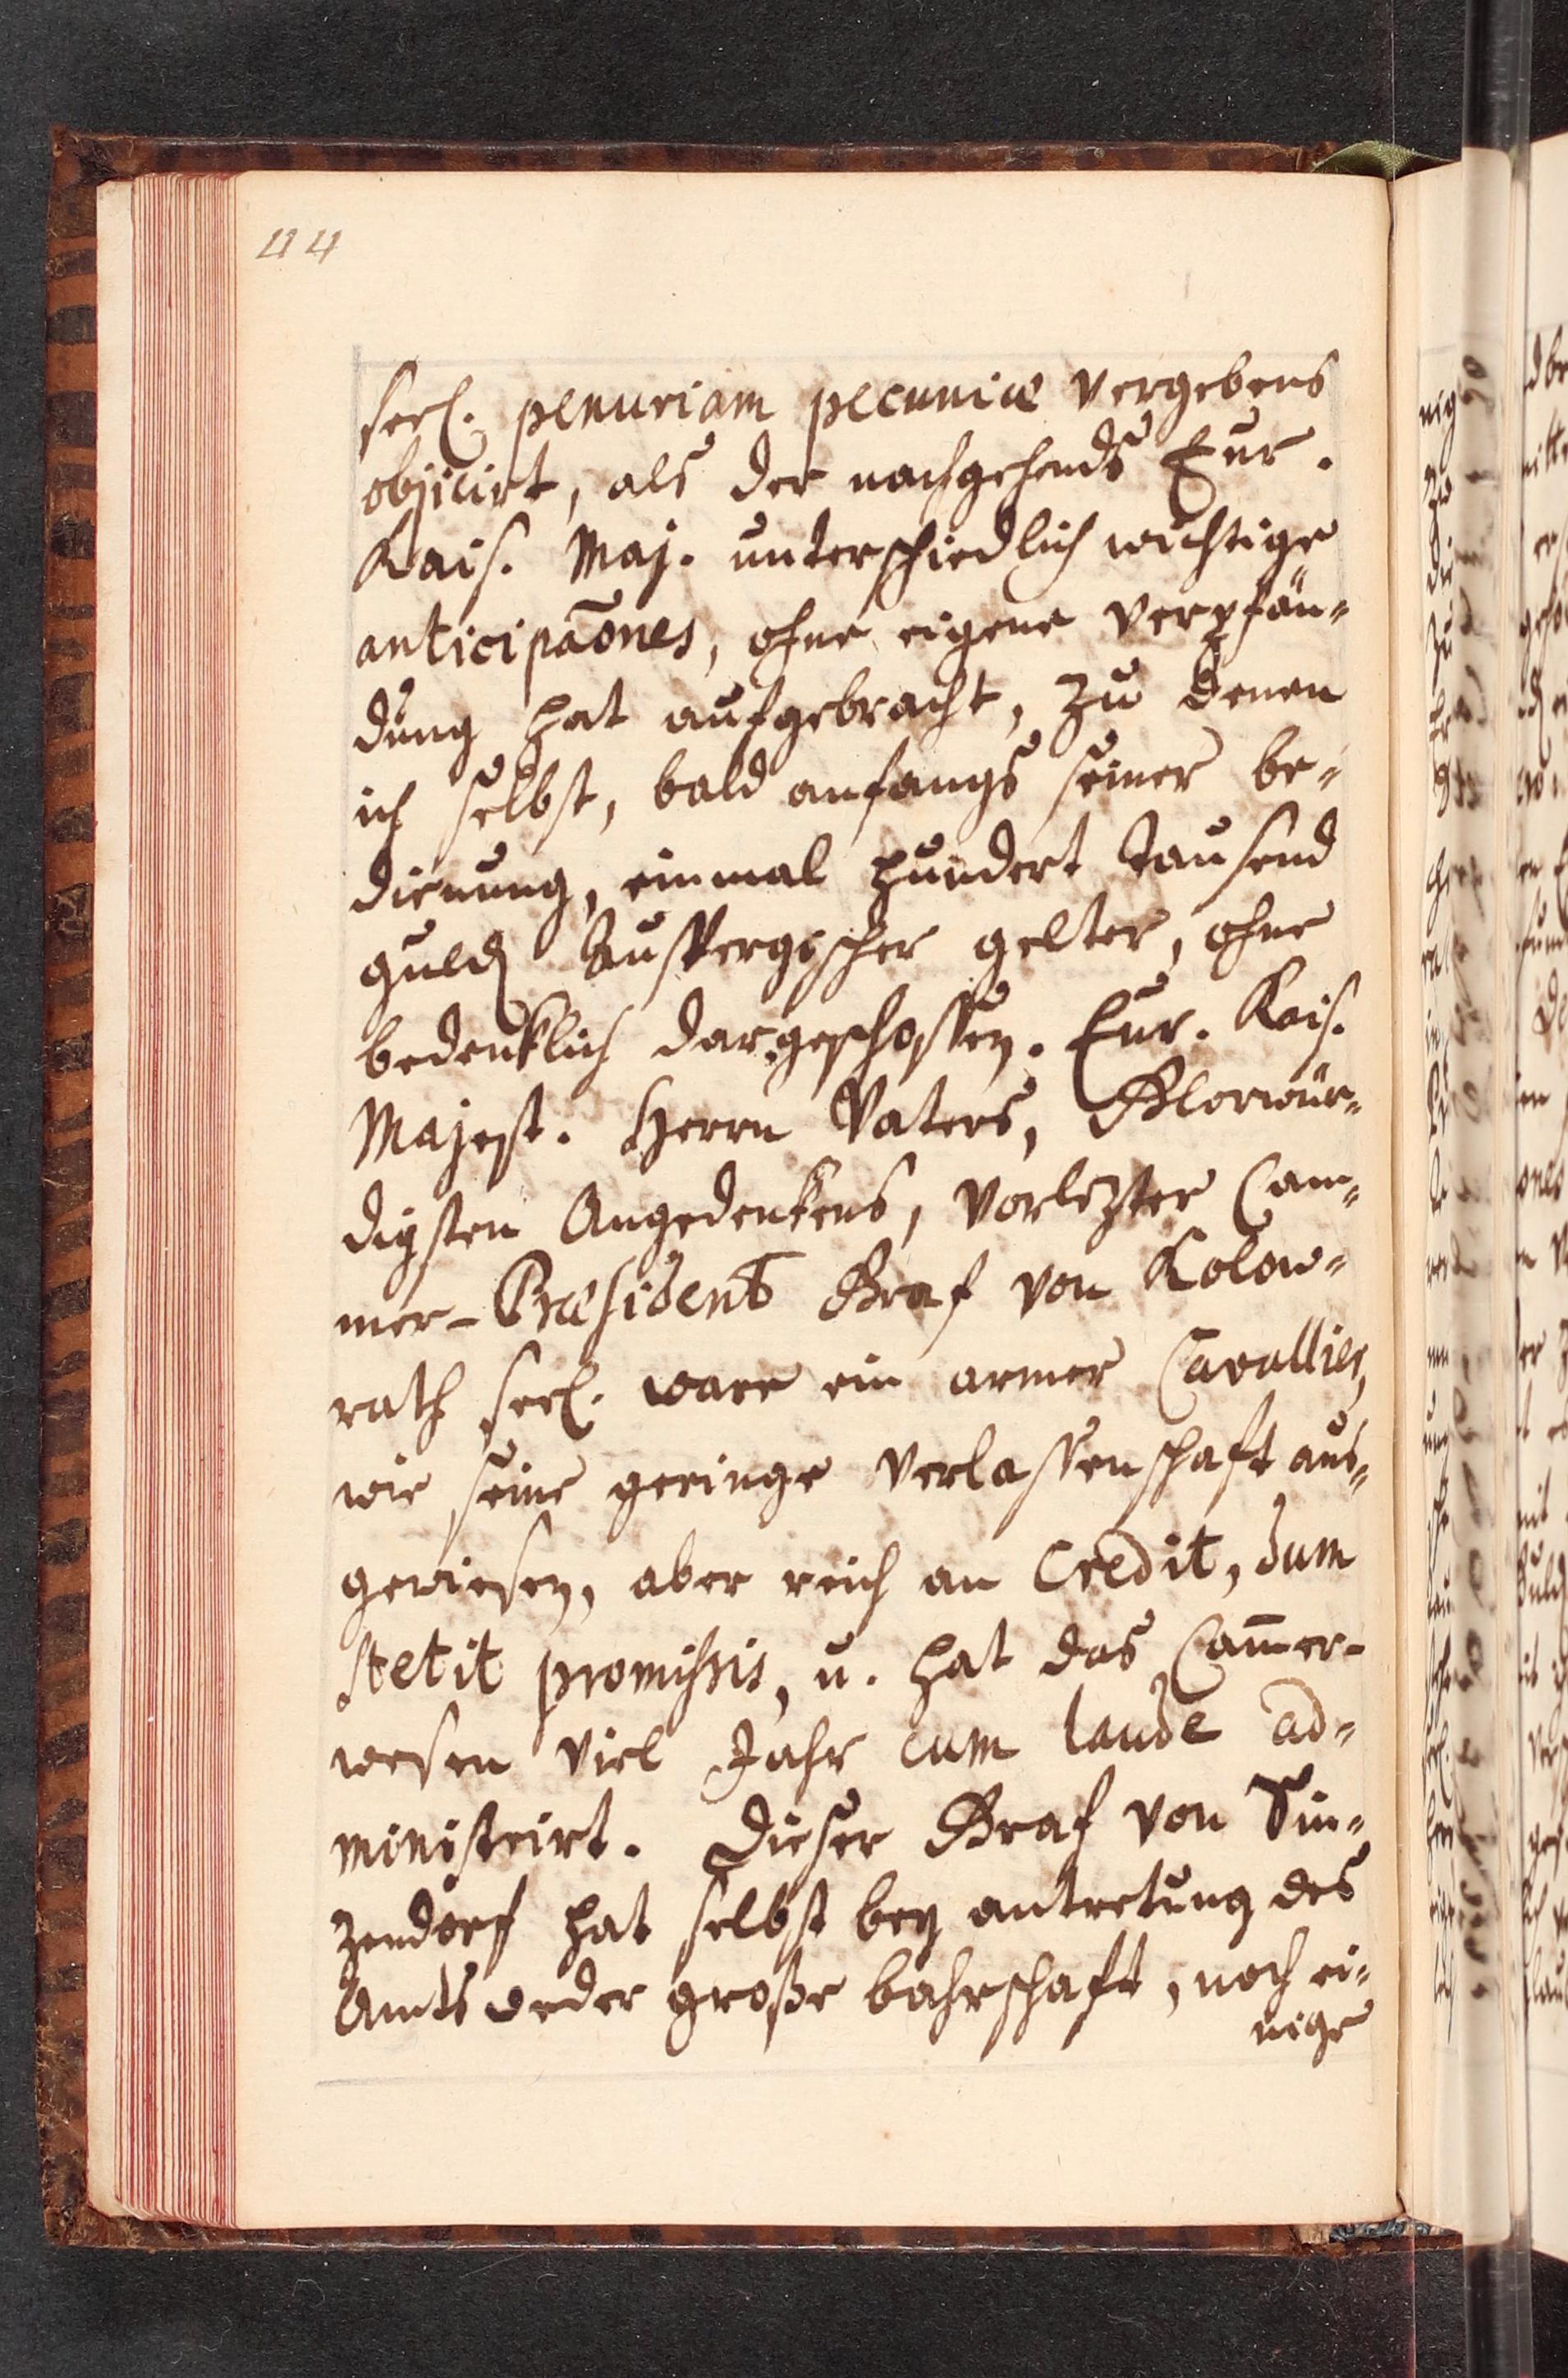 44
seel. penuriam pecuniæ vergebens
objicirt, als der nachgehends Eur.
Kais. Maj. unterschiedlich wichtige
anticipāones, ohne eigene verpfän=
dung hat aufgebracht, zu denen
ich selbst, bald anfangs seiner be=
dienung, einmal hundert tausend
guld Auspergischer gelter, ohne
bedenklich dargeschossen. Eur. Kais.
Majest. Herrn Vaters, Glorwür=
digsten Angedenkens, vorlezter Cam=
mer-Præsident Graf von Kolow=
rath seel. ware ein armer Cavallier,
wie seine geringe verlassenschaft aus=
gewiesen, aber reich an Credit, dum
stetit promissis, u. hat das Cam̄er-
wesen viel Jahr cum laude ad=
ministrirt. Dieser Graf von Sin=
zendorf hat selbst bey antretung des
Amts weder große bahrschaft, noch ei=
nige